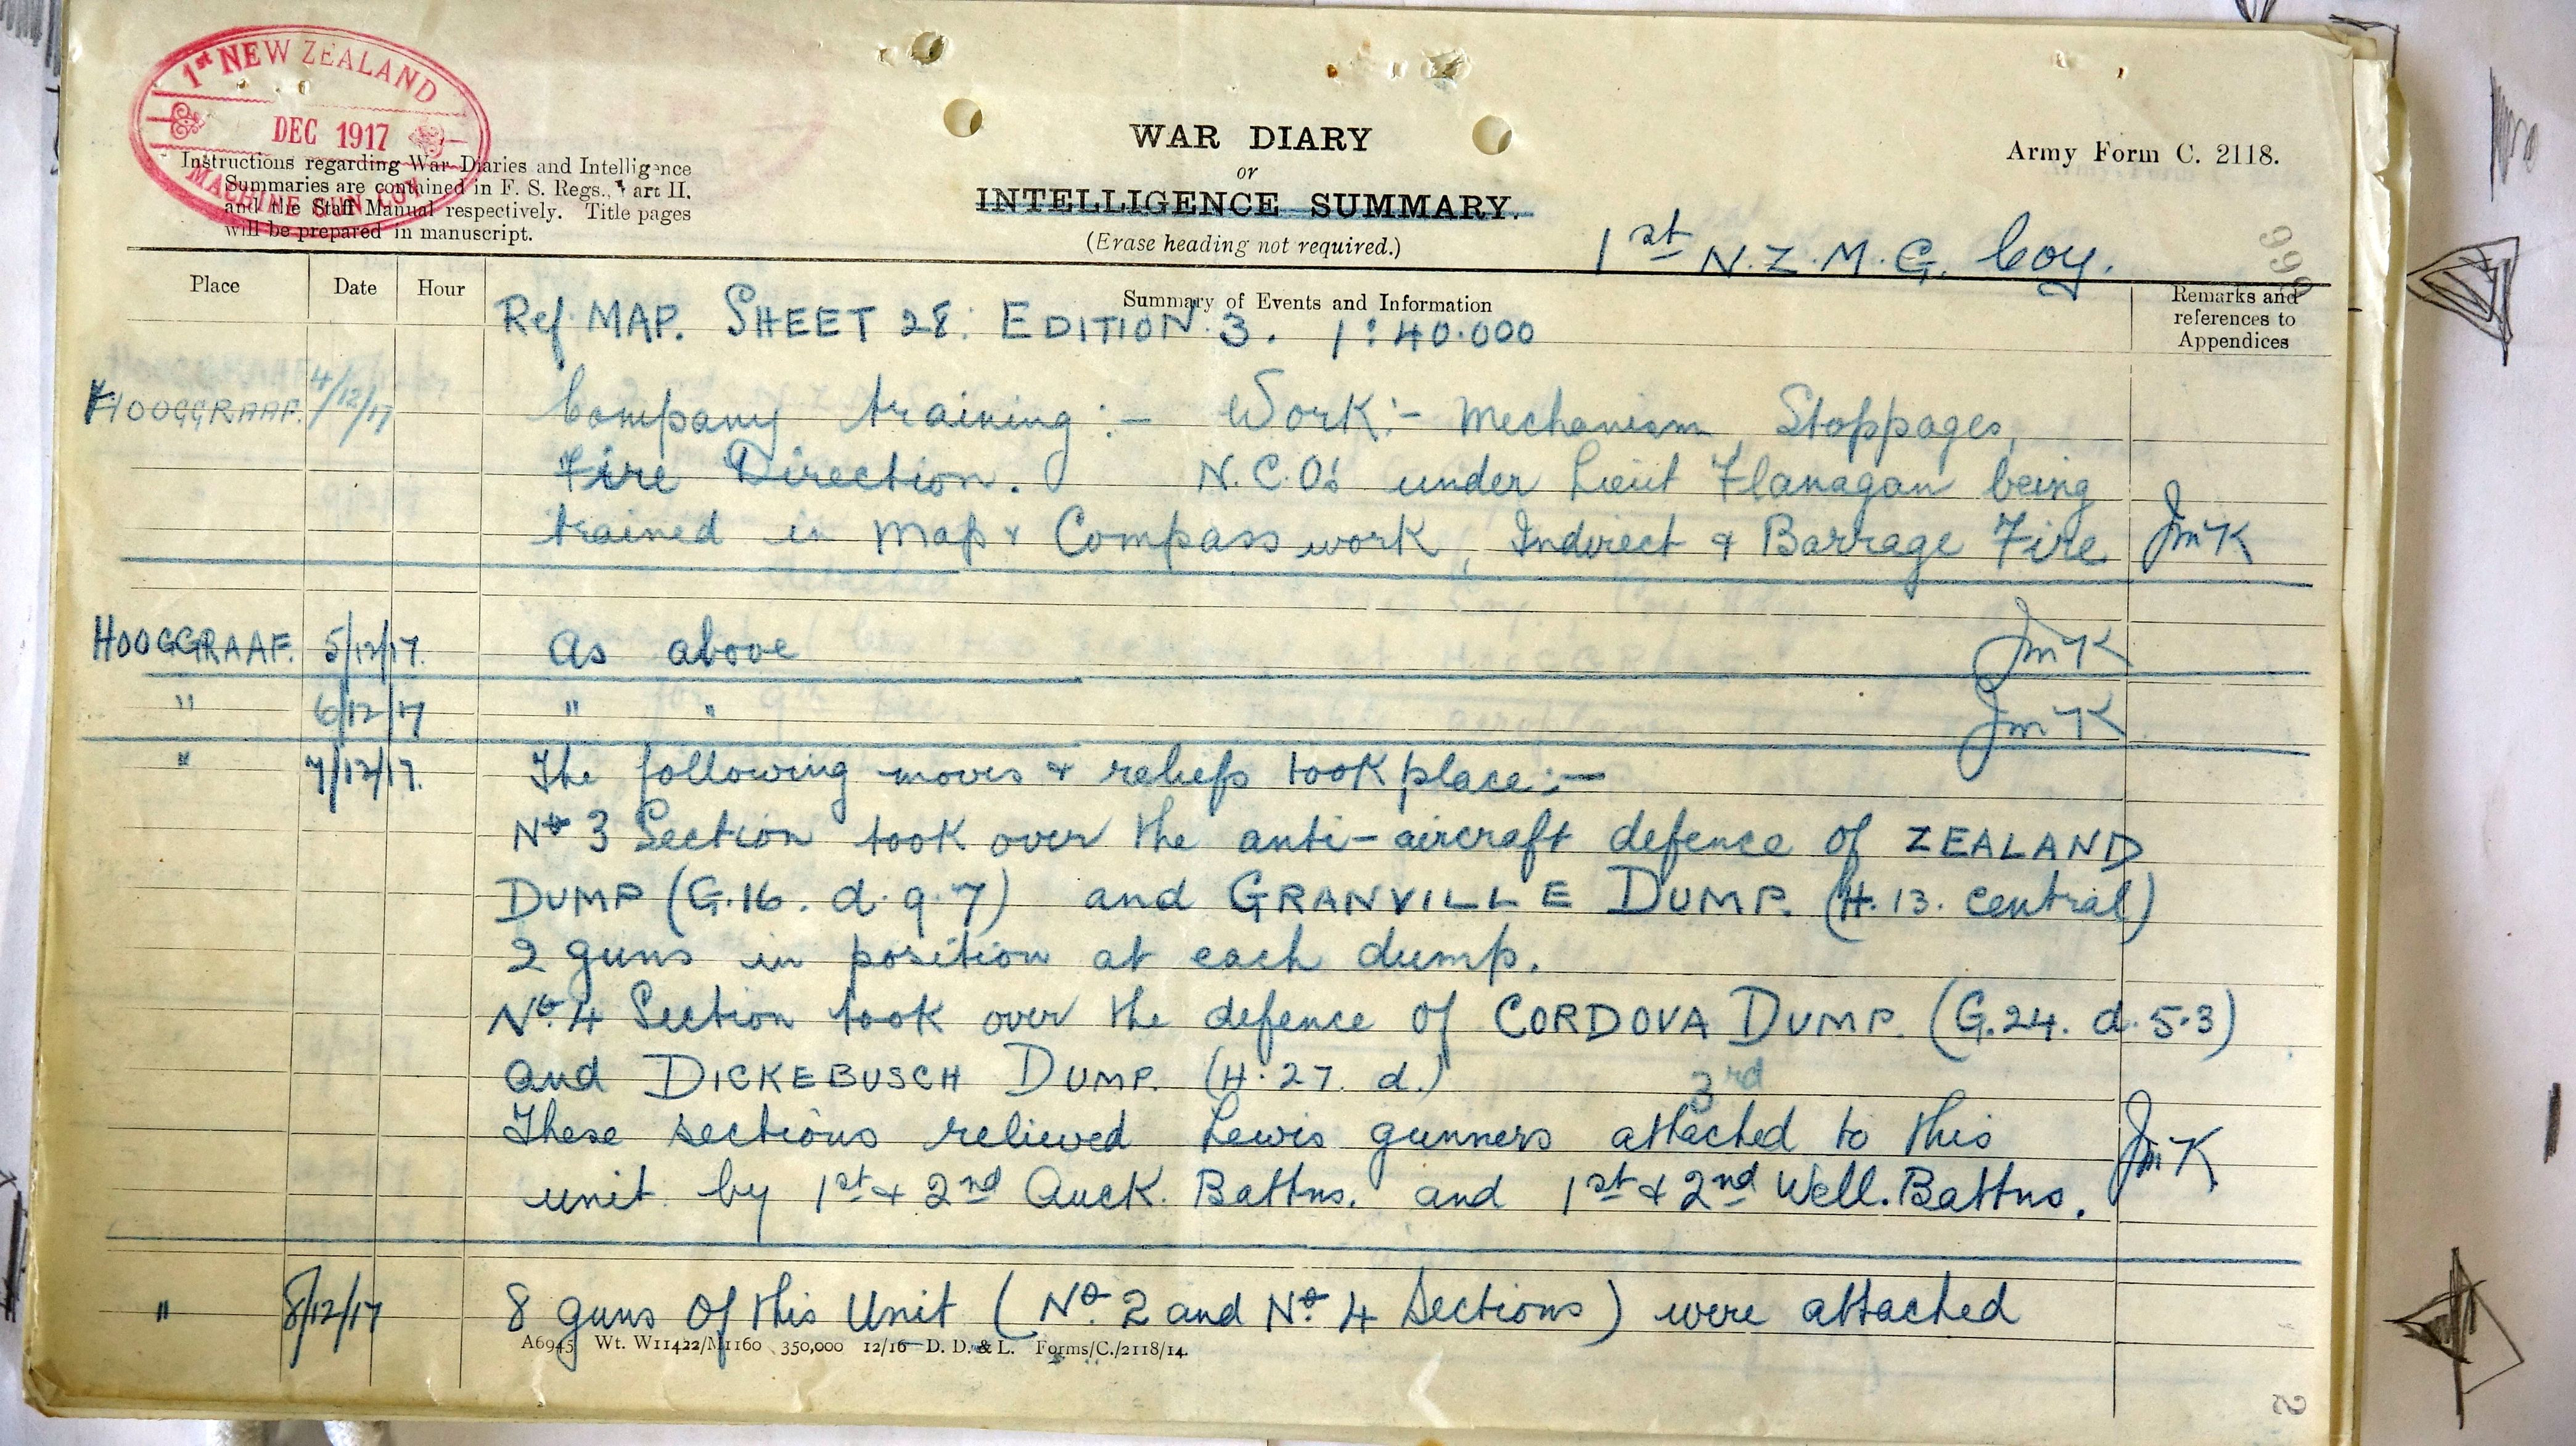 1st NEW ZEALAND
DEC 1917
MACHINE GUN COY
Instructions regarding War Diaries and Intelligence
Summaries are contained in F. S. Regs., Part II.
and the Staff Manual respectively. Title pages
will be prepared in manuscript.
WAR DIARY
or
INTELLIGENCE SUMMARY.
(Erase heading not required.)
Army Form C. 2118.
1st N.Z.M.G. Coy.
999
Place Date Hour Summary of Events and Information Remarks and references to Appendices
Ref. MAP. SHEET 28. EDITION. 3. 1:40.000
HOOGGRAAF. 4/12/17 Company training:- Work:- Mechanism, Stoppages,
Fire Direction. N.C.O's under Lieut Flanagan being
trained in Map & Compass work, Indirect & Barrage Fire JMcK
HOOGGRAAF. 5/12/17. As above JMcK
" 6/12/17 " " JMcK
" 7/12/17. The following moves & reliefs took place:-
No 3 Section took over the anti-aircraft defence of ZEALAND
DUMP (G.16. d.9.7) and GRANVILLE DUMP. (H.13. central)
2 guns in position at each dump.
No. 4 Section took over the defence of CORDOVA DUMP. (G.24. d.5.3)
and DICKEBUSCH DUMP. (H.27. d.)
3rd
These sections relieved Lewis gunners attached to this
unit by 1st & 2nd Auck. Battns. and 1st & 2nd Well. Battns. JMcK
" 8/12/17 8 guns of this Unit (No 2 and No. 4 Sections) were attached
A6945 Wt. W11422/M1160 350,000 12/16 D. D. & L. Forms/C./2118/14.
2